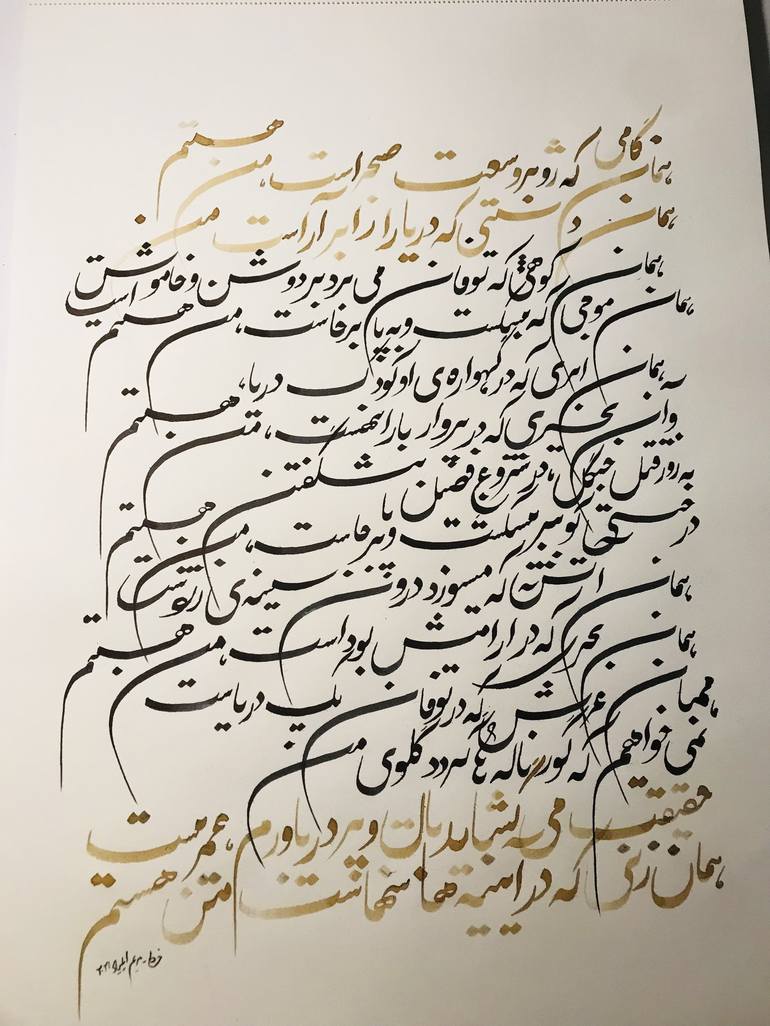 همان گامی که رو بر وسعت صحراست، من هستم
همان دستی که دریا را از ابر آراست من
همان کوهی که توفان می برد بر دوش و خاموش است
همان موجی که بشکست و به پا برخاست، من هستم
همان ابری که در گهواره‌ی او کودک دریا،
وان که در پروار باران است، من هستم
به روز قتل جنگل، در شروع فصل بشکفتن
در که سر بشکست و برخاست، من هستم
همان که میسوزد درون سینه‌ی زرتشت
همان بحری که در آرامش بوداست، من هستم
همان غرش که در توفان یک دریاست
نمی خواهم که گور ناله ها گردد گلوی من
حقیقت می گشاید بال و پر در باورم، عمریست
همان زنی که در آیینه ها تنهاست من هستم